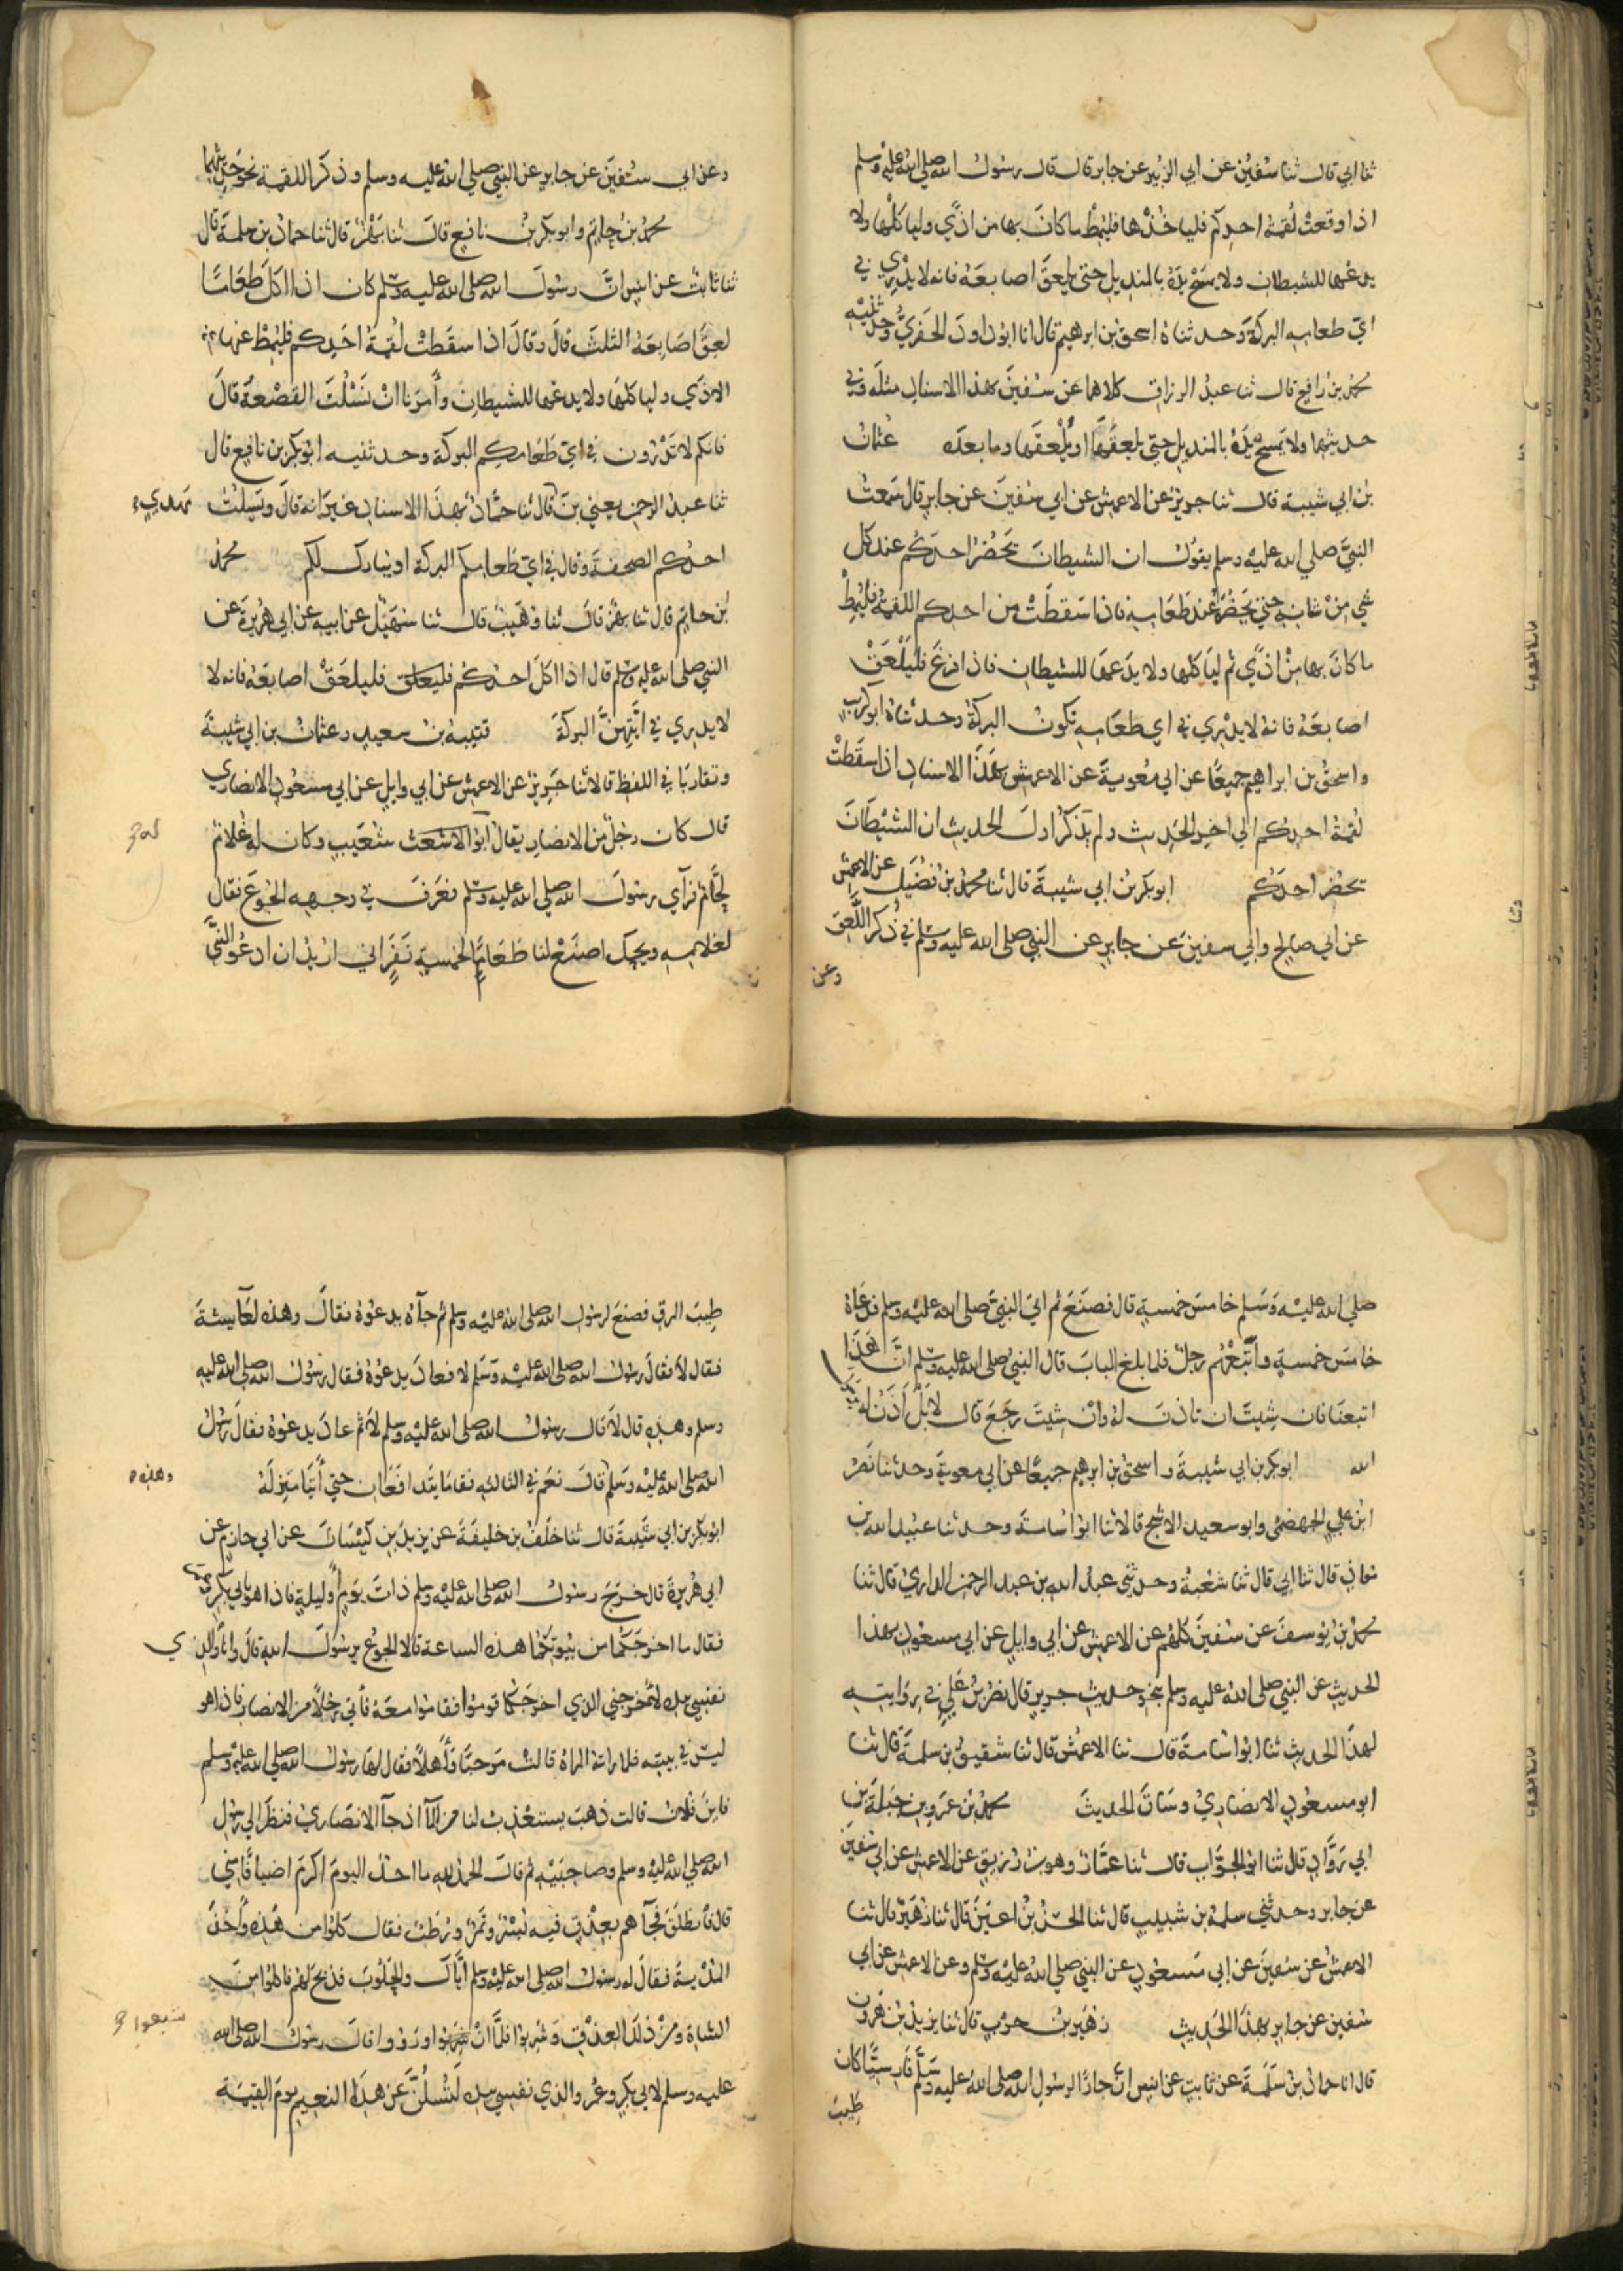 ثنا ابي قال ثنا سفين عن ابي الزبير عن جابر قال قال رسول الله صلى الله عليه وسلم
اذا وقعت لقمة احدكم فلياخذها فليمط ما كان بها من اذي ولياكلها ولا
يدعها للشيطان ولا يمسح يده بالمنديل حتي يلعق اصابعه فانه لا يدري في
اي طعامه البركة وحدثناه اسحق بن ابرهيم قال انا ابو داود الحفري وحدثنيه
محمد بن رافع قال ثنا عبد الرزاق كلاهما عن سفين بهذا الاسناد مثله وفي
حديثهما ولا يمسح يده بالمنديل حتي يلعقها او يلعقها وما بعده عثمان
بن ابي شيبة قال ثنا جرير عن الاعمش عن ابي سفين عن جابر قال سمعت
النبي صلي الله عليه وسلم يقول ان الشيطان يحضر احدكم عند كل
شي من شانه حتي يحضره عند طعامه فاذا سقطت من احدكم اللقمة فليمط
ما كان بها من اذي ثم لياكلها ولا يدعها للشيطان فاذا فرغ فليلعق
اصابعه فانه لا يدري في اي طعامه تكون البركة وحدثناه ابو كريب
واسحق بن ابراهيم جميعا عن ابي معوية عن الاعمش بهذا الاسناد اذا سقطت
لقمة احدكم الي اخر الحديث ولم يذكر اول الحديث ان الشيطان
يحضر احدكم ابو بكر بن ابي شيبة قال ثنا محمد بن فضيل عن الاعمش
عن ابي صالح وابي سفين عن جابر عن النبي صلى الله عليه وسلم في ذكر اللعق
وعن
وعن ابي سفين عن جابر عن النبي صلي الله عليه وسلم وذكر اللقمة نحو حديثهما
محمد بن حاتم وابو بكر بن نافع قال ثنا بهز قال ثنا حماد بن سلمة قال
ثنا ثابت عن انس ان رسول الله صلى الله عليه وسلم كان اذا اكل طعاما
لعق اصابعه الثلث قال وقال اذا سقطت لقمة احدكم فليمط عنها
الاذي ولياكلها ولا يدعها للشيطان وأمرنا ان نسلت القصعة قال
فانكم لا تدرون في اي طعامكم البركة وحدثنيه ابو بكر بن نافع قال
ثنا عبد الرحمن يعني بن قال ثنا حماد بهذا الاسناد غير انه قال وليسلت مهدي
احدكم الصحفة وقال في اي طعامكم البركة او يبارك لكم محمد
بن حاتم قال ثنا بهز قال ثنا وهيب قال ثنا سهيل عن ابيه عن ابي هريرة عن
النبي صلى الله عليه وسلم قال اذا اكل احدكم فليعلق فليلعق اصابعه فانه لا
لا يدري في ايتهن البركة قتيبة بن سعيد وعثمان بن ابي شيبة
وتقاربا في اللفظ قالا ثنا جرير عن الاعمش عن ابي وايل عن ابي مسعود الانصاري
قال كان رجل من الانصار يقال ابو الاشعث شعيب وكان له غلام له
لحام فرآي رسول الله صلي الله عليه وسلم فعرف في وجهه الجوع فقال
لغلامه ويحك اصنع لنا طعاما لخمسة نفر اني اريد ان ادعو النبي
صلي الله عليه وسلم خامس خمسة قال فصنع ثم اتي النبي صلى الله عليه وسلم فدعاه
خامس خمسة واتبعهم رجل فلما بلغ الباب قال النبي صلى الله عليه وسلم ان هذا
اتبعنا فان شيت ان تاذن له وان شيت رجع قال لا بل أذن له
الله ابو بكر بن ابي شيبة واسحق بن ابرهيم جميعا عن ابي معوية وحدثنا نصر
ابن علي الجهضمي وابو سعيد الاشج قالا ثنا ابو اسامة وحدثنا عبيد الله بن
معاذ قال ثنا ابي قال ثنا شعبة وحدثني عبد الله بن عبد الرحمن الداري قال ثنا
محمد بن يوسف عن سفين كلهم عن الاعمش عن ابي وايل عن ابي مسعود بهذا
الحديث عن النبي صلى الله عليه وسلم بنحو حديث جرير قال نصر بن علي في روايته
لهذا الحديث ثنا ابو اسامة قال ثنا الاعمش قال ثنا شقيق بن سلمة قال ثنا
ابو مسعود الانصاري وساق الحديث محمد بن عمرو بن جبلة بن
ابي رواد قال ثنا ابو الجواب قال ثنا عمار وهو بن رزيق عن الاعمش عن ابي سفين
عن جابر وحدثني سلمة بن شبيب قال ثنا الحسن بن اعين قال ثنا زهير قال ثنا
الاعمش عن سفين عن ابي مسعود عن النبي صلي الله عليه وسلم وعن الاعمش عن ابي
سفين عن جابر بهذا الحديث زهير بن حرب قال ثنا يزيد بن هرون
قال انا حماد بن سلمة عن ثابت عن انس ان جارا لرسول الله صلى الله عليه وسلم فارسيا كان
طيب
طيب المرق فصنع لرسول الله صلى الله عليه وسلم ثم جآه يدعوه فقال وهذه لعايشة
فقال لا فقال رسول الله صلى الله عليه وسلم لا فعاد يدعوه فقال رسول الله صلى الله عليه
وسلم وهذه قال لا قال رسول الله صلى الله عليه وسلم لا ثم عاد يدعوه فقال رسول
الله صلى الله عليه وسلم قال نعم في الثالثه فقاما يتدافعان حتي أتيا منزله وهذه
ابو بكر بن ابي شيبة قال ثنا خلف بن خليفة عن يزيد بن كيسان عن ابي حازم عن
ابي هريرة قال خرج رسول الله صلى الله عليه وسلم ذات يوم أو ليلة فاذا هو بابي بكر وعمر
فقال ما اخرجكما من بيوتكما هذه الساعة قالا الجوع يرسول الله قال وانا والذي
نفسي بيده لأخرجني الذي اخرجكما قوموا فقاموا معه فأتي رجلا من الانصار فاذا هو
ليس في بيته فلما راته المراة قالت مرحبا وأهلا فقال لها رسول الله صلي الله عليه وسلم
فاين فلان قالت ذهب يستعذب لنا من المآ اذ جآ الانصاري فنظر الي رسول
الله صلي الله عليه وسلم وصاحبيه ثم قال الحمد لله ما احد اليوم اكرم اضيافا مني
قال فأنطلق فجآهم بعذق فيه بسر وتمر ورطب فقال كلوا من هذه وأخذ
المدية فقال له رسول الله صلى الله عليه وسلم أياك والحلوب فذبح لهم فاكلوا من
الشاة ومن ذلك العذق وشربوا فلما ان شربوا ورووا قال رسول الله صلى الله شبعوا
عليه وسلم لابي بكر وعمر والذي نفسي بيده لتسلن عن هذا النعيم يوم القيمة